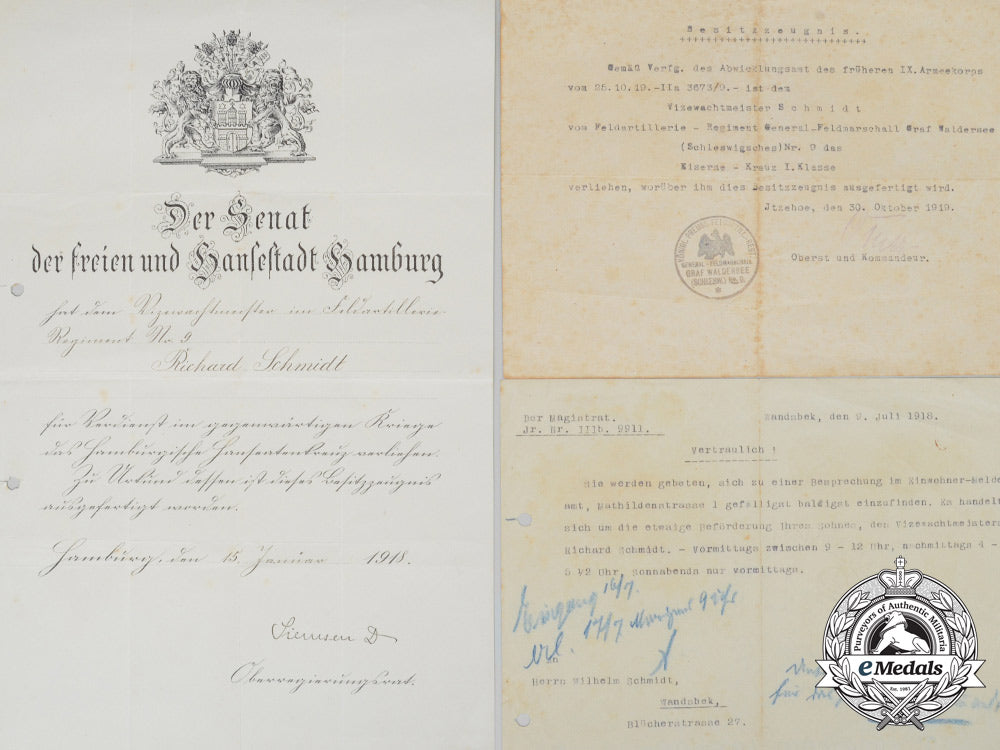 Der Senat
der freien und Hansestadt Hamburg
hat dem Vizewachtmeister im Feldartillerie-
Regiment No. 9
Richard Schmidt
für Verdienst im gegenwärtigen Kriege
das Hamburgische Hanseatenkreuz verliehen.
Zu Urkund dessen ist dieses Besitzzeugnis
ausgefertigt worden.
Hamburg, den 15. Januar 1918.
Oberregierungsrat.
Besitzzeugnis.
Gemäß Verfg. des Abwicklungsamt des früheren IX.Armeekorps
vom 25.10.19.-IIa 3673/9.- ist dem
Vizewachtmeister Schmidt
vom Feldartillerie - Regiment General-Feldmarschall Graf Waldersee
(Schleswigsches)Nr. 9 das
Eiserne - Kreuz I.Klasse
verliehen, worüber ihm dies Besitzzeugnis ausgefertigt wird.
Jtzehoe, den 30. Oktober 1919.
Oberst und Kommandeur.
GENERAL-FELDMARSCHALL
GRAF WALDERSEE
(SCHLESW.) No. 9.
Der Magistrat.
Jr. Nr. IIIb. 9911.
Wandsbek, den 9. Juli 1918.
Vertraulich !
Sie werden gebeten, sich zu einer Besprechung im Einwohner-Melde
amt, Mathildenstrasse 1 gefälligst baldigst einzufinden. Es handelt
sich um die etwaige Beförderung Ihres Sohnes, des Vizewachtmeisters
Richard Schmidt. - Vormittags zwischen 9 - 12 Uhr, nachmittags 4 -
5 1/2 Uhr, sonnabends nur vormittags.
Eingang 16/7.
17/7 9 Uhr
An
Herrn Wilhelm Schmidt,
Wandsbek,
Blücherstrasse 27.
Purveyors of Authentic Militaria
eMedals
Est. 1987